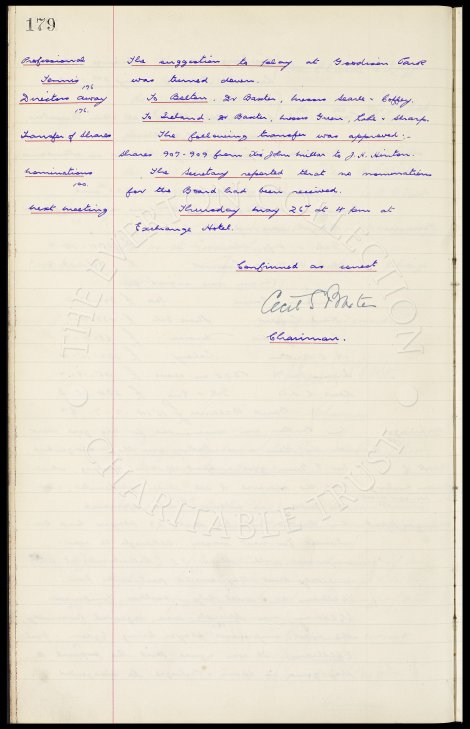 179
Professional Tennis 176
The suggestion to play at Goodison Park
was turned down.
Directors away 176.
To Bolton, Dr Baxter, Messrs Searle & Coffey.
To Ireland, Dr Baxter, Messrs Green, & Sharp.
Transfer of Shares
The following transfer was approved:-
Shares 907-909 from John to J. K.
Nominations 100.
The Secretary reported that no nominations
for the Board had been received.
Next meeting
Thursday May at 4 pm at
Exchange Hotel.
Confirmed as correct
Cecil S Baxter
Chairman.
THE EVERTON COLLECTION
CHARITABLE TRUST